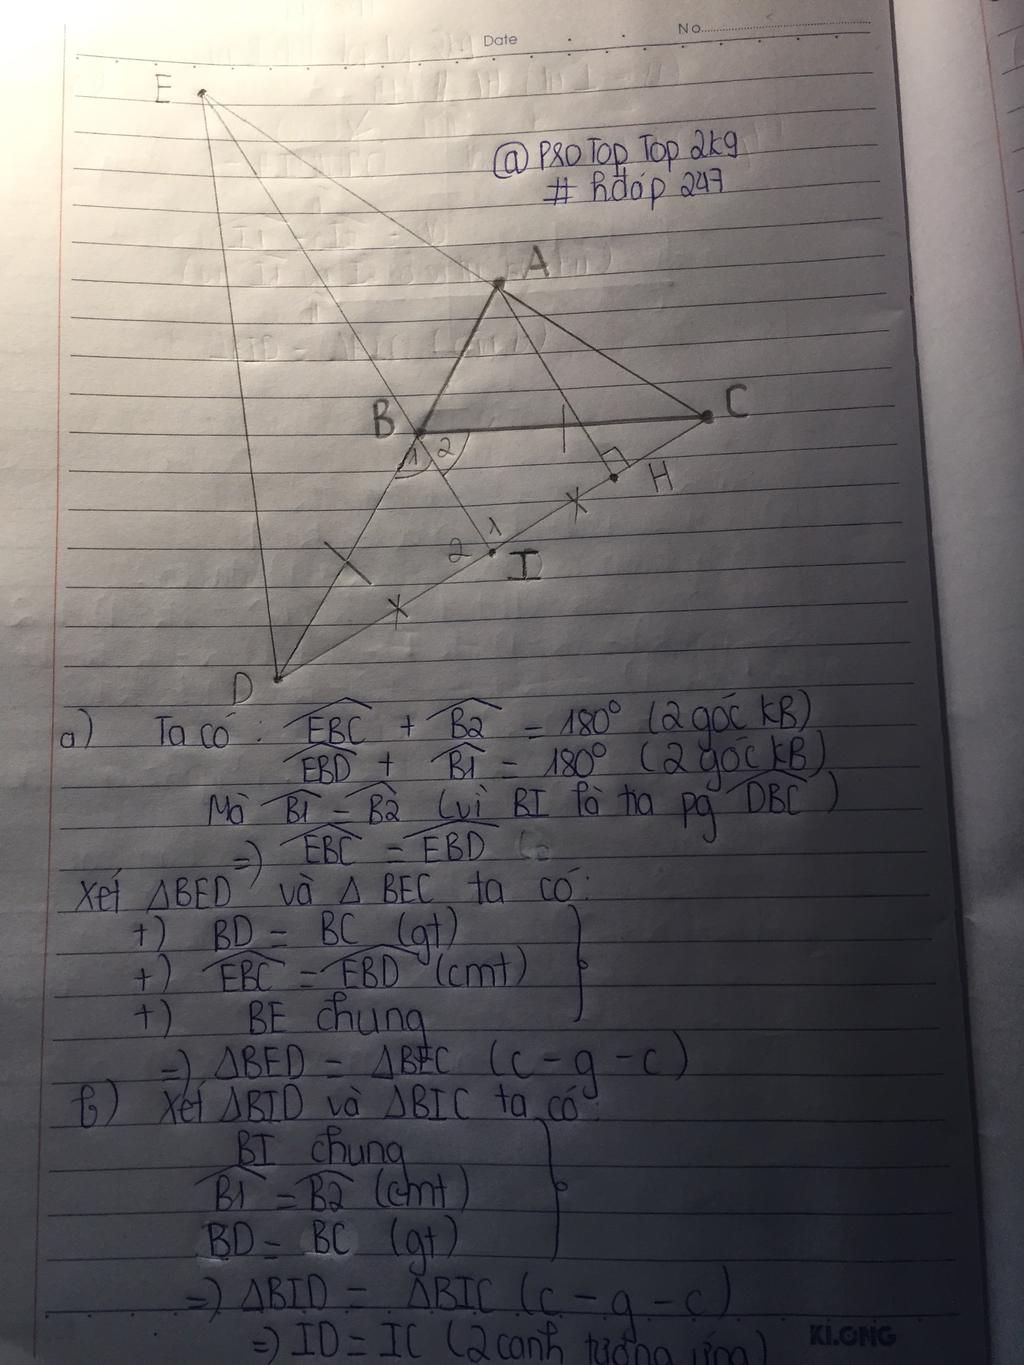 Date
No
E
@ PRO Top Top 2k9
# hđáp 247
A
B
C
1
2
H
1
2
I
D
a) Ta có : EBC + B2 = 180° (2 góc KB)
EBD + B1 = 180° (2 góc KB)
Mà B1 = B2 (vì BI là tia pg DBC)
=> EBC = EBD
Xét ΔBED và Δ BEC ta có:
+) BD = BC (gt)
+) EBC = EBD (cmt)
+) BE chung
=> ΔBED = ΔBEC (c - g - c)
b) Xét ΔBID và ΔBIC ta có:
BI chung
B1 = B2 (cmt)
BD = BC (gt)
=> ΔBID = ΔBIC (c - g - c)
=> ID = IC (2 cạnh tương ứng)
KLONG